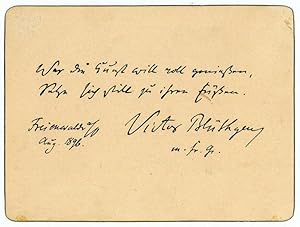 Wer die Kunst will voll genießen,
Setze sich still zu ihren Füßen.
Freienwalde a/O
Aug. 1896.
Victor Blüthgen
m. fr. Gr.